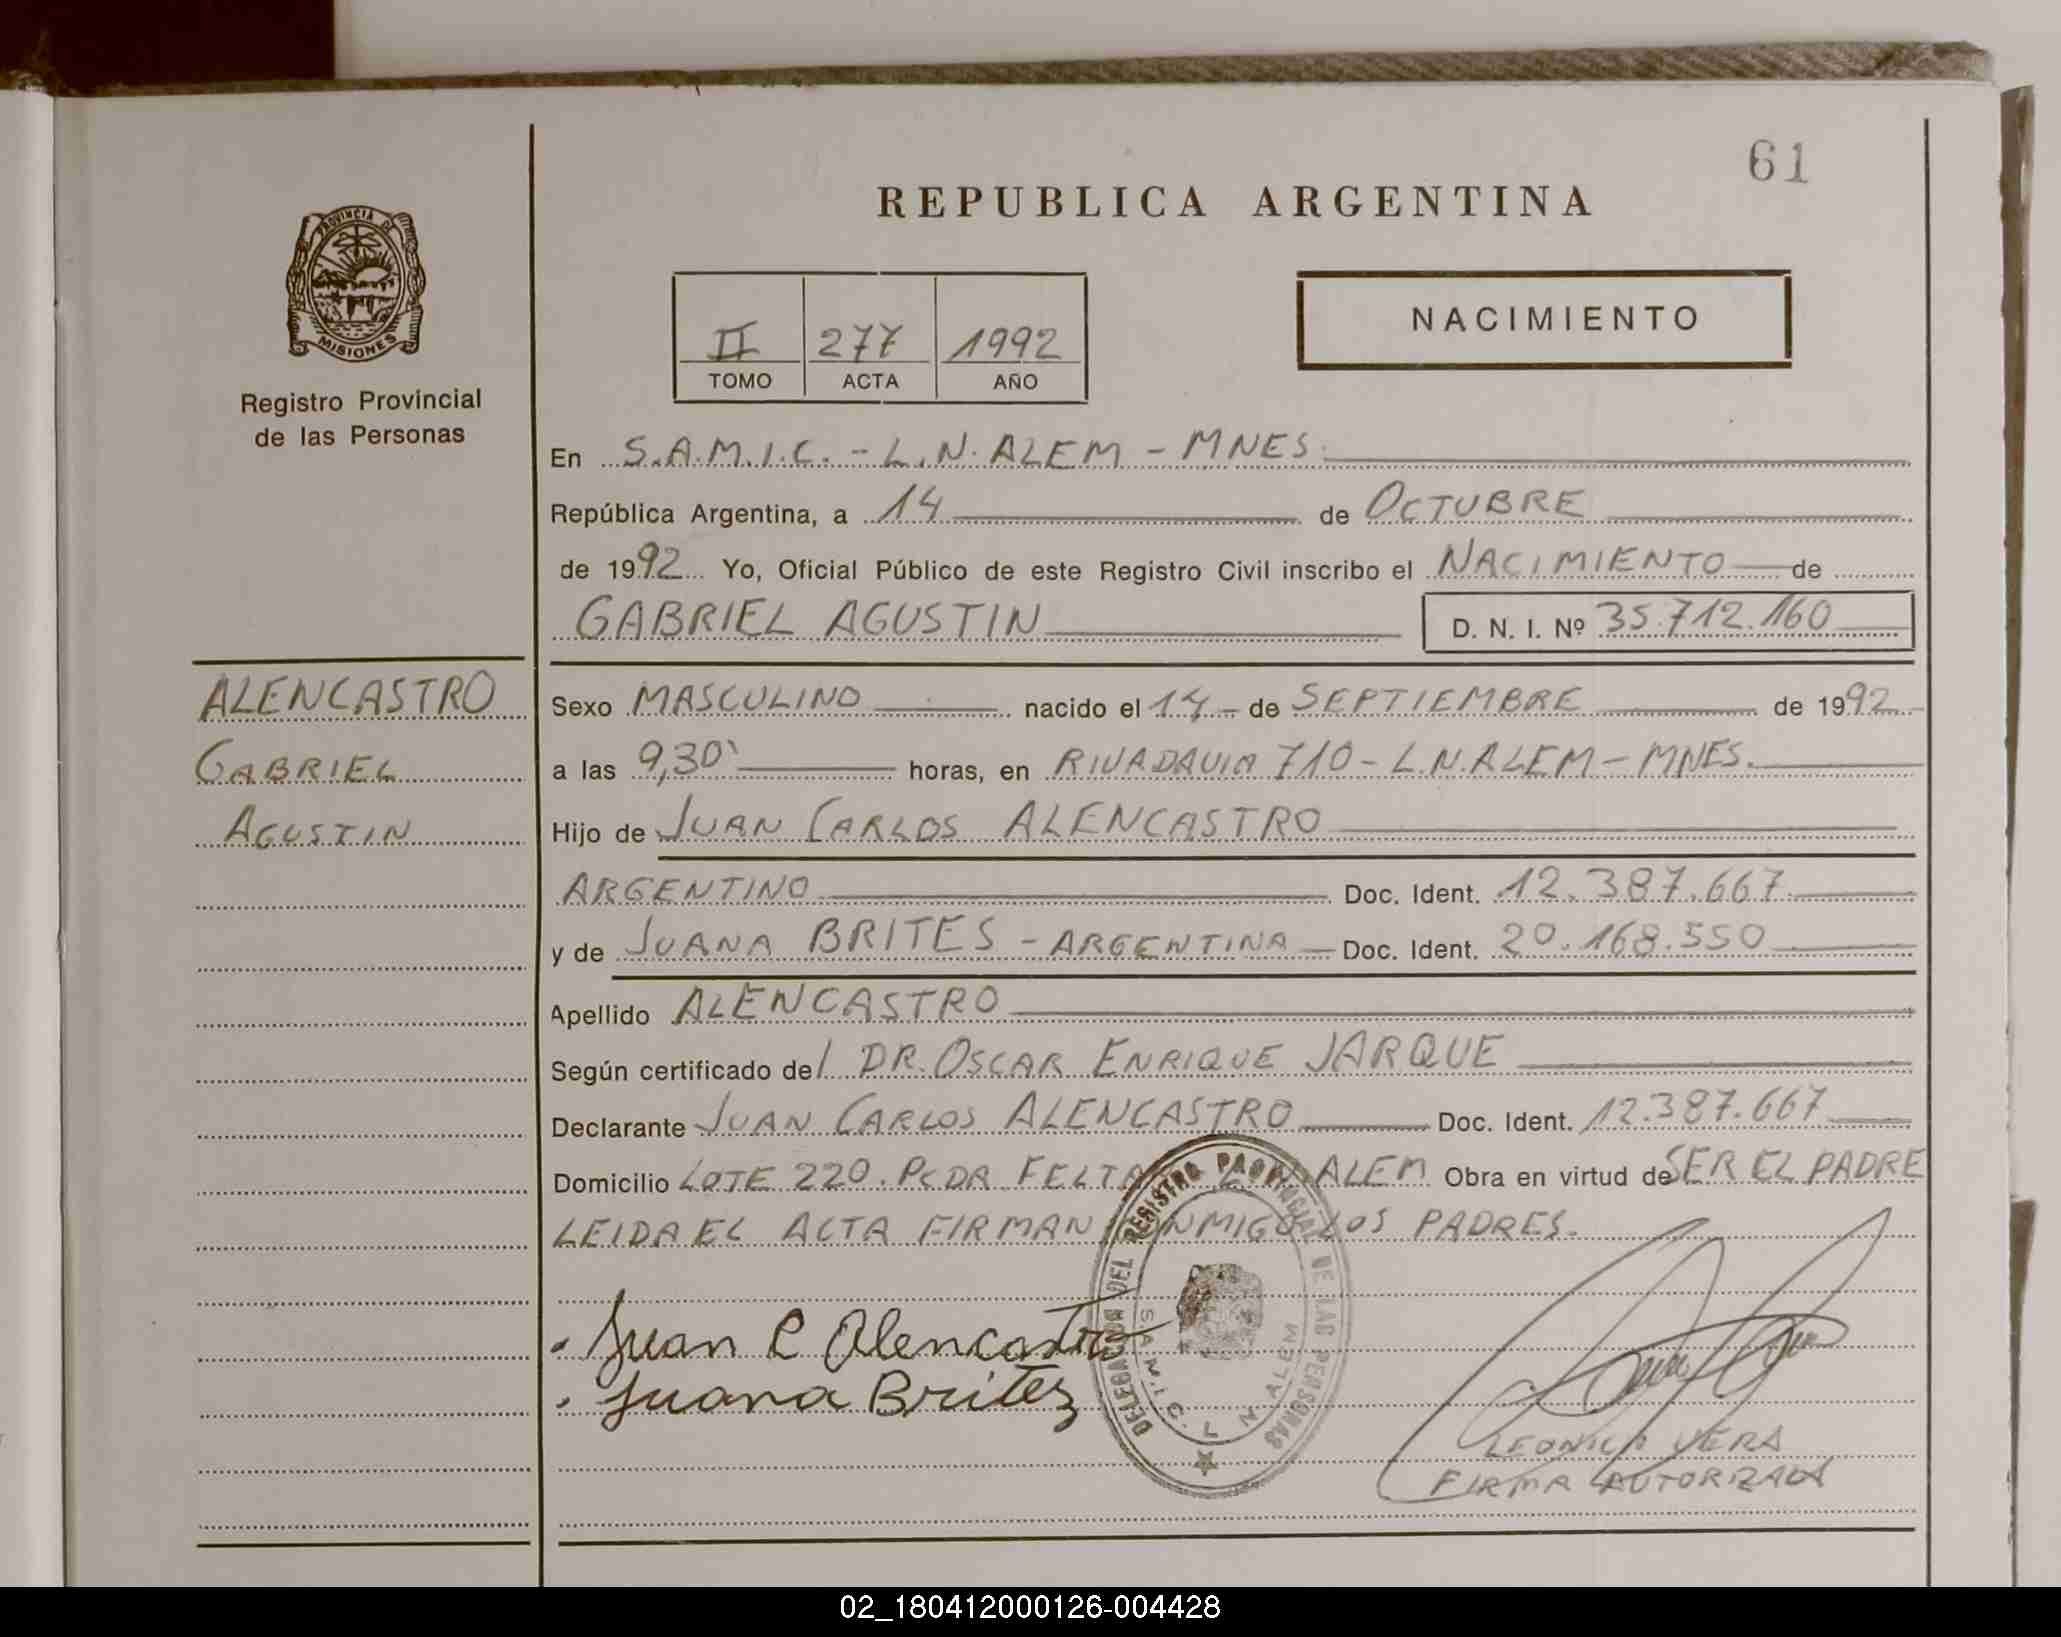 61
REPUBLICA ARGENTINA
PROVINCIA DE
MISIONES
Registro Provincial
de las Personas
II 277 1992
TOMO ACTA AÑO
NACIMIENTO
En S.A.M.I.C. - L.N. ALEM - MNES.
República Argentina, a 14 de OCTUBRE
de 1992 Yo, Oficial Público de este Registro Civil inscribo el NACIMIENTO de
GABRIEL AGUSTIN D. N. I. Nº 35.712.160
ALENCASTRO
GABRIEL
AGUSTIN
Sexo MASCULINO nacido el 14 de SEPTIEMBRE de 1992
a las 9,30 horas, en RIVADAVIA 710 - L.N.ALEM - MNES.
Hijo de JUAN CARLOS ALENCASTRO
ARGENTINO Doc. Ident. 12.387.667
y de JUANA BRITES - ARGENTINA Doc. Ident. 20.168.550
Apellido ALENCASTRO
Según certificado del DR. OSCAR ENRIQUE JARQUE
Declarante JUAN CARLOS ALENCASTRO Doc. Ident. 12.387.667
Domicilio LOTE 220. PCDA. ALEM Obra en virtud de SER EL PADRE
LEIDA EL ACTA FIRMAN CONMIGO LOS PADRES.
Juan C Alencastro
Juana Britez
DELEGACION DEL REGISTRO PROVINCIAL DE LAS PERSONAS
S.A.M.I.C. L N ALEM
VERA
FIRMA AUTORIZADA
02_180412000126-004428